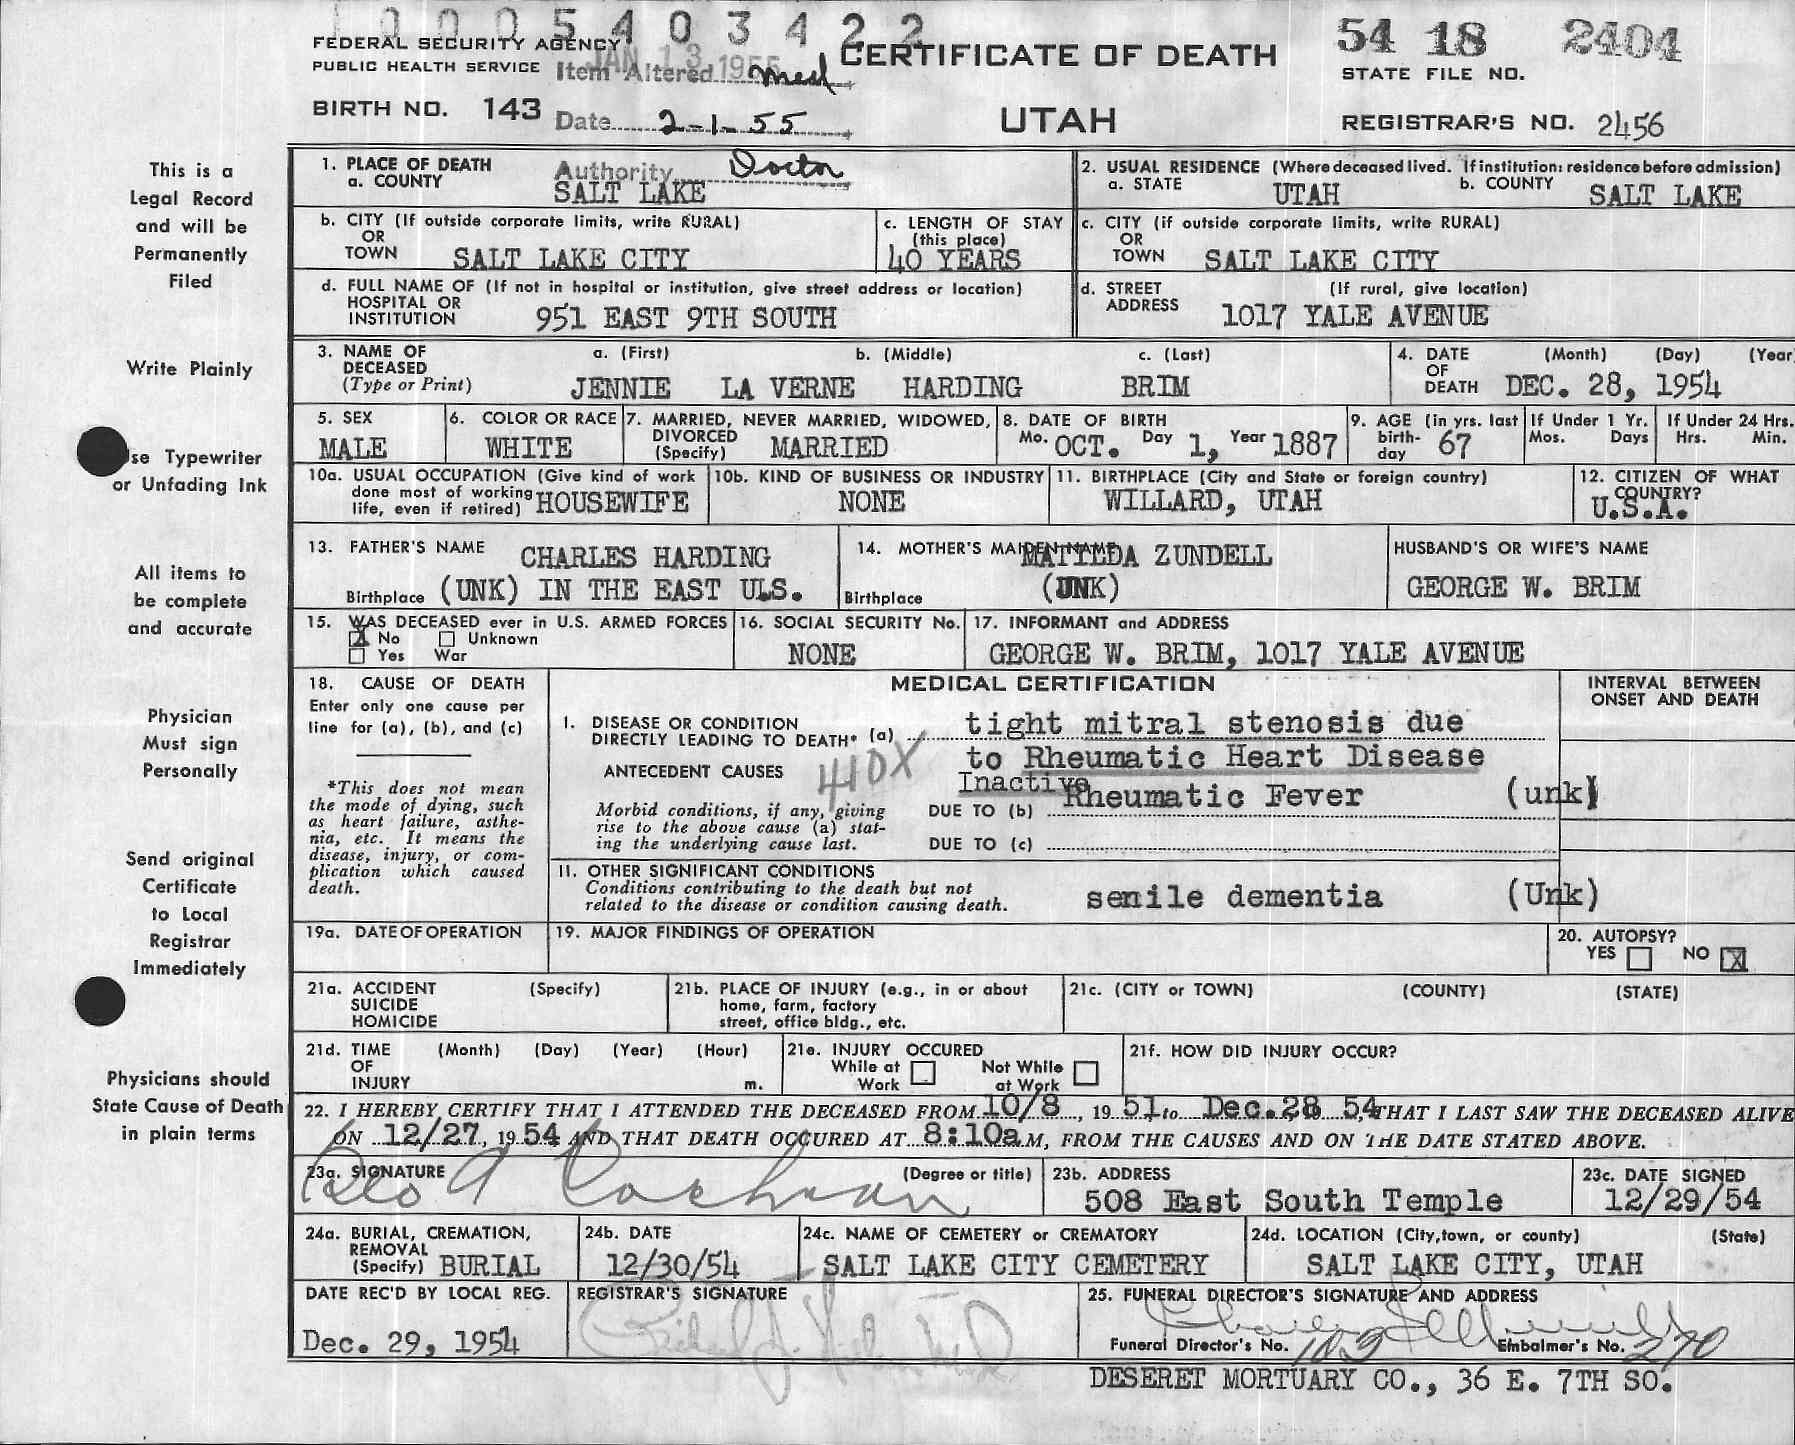 10005403422
FEDERAL SECURITY AGENCY
PUBLIC HEALTH SERVICE
JAN 13 1955
Item Altered Med
CERTIFICATE OF DEATH
54 18 2404
STATE FILE NO.
BIRTH NO. 143
Date 2-1-55
UTAH
REGISTRAR'S NO. 2456
This is a
Legal Record
and will be
Permanently
Filed
Write Plainly
se Typewriter
or Unfading Ink
All items to
be complete
and accurate
Physician
Must sign
Personally
Send original
Certificate
to Local
Registrar
Immediately
Physicians should
State Cause of Death
in plain terms
1. PLACE OF DEATH
a. COUNTY
Authority Doctor
SALT LAKE
2. USUAL RESIDENCE (Where deceased lived. If institution: residence before admission)
a. STATE UTAH b. COUNTY SALT LAKE
b. CITY (If outside corporate limits, write RURAL)
OR
TOWN SALT LAKE CITY
c. LENGTH OF STAY
(this place)
40 YEARS
c. CITY (if outside corporate limits, write RURAL)
OR
TOWN SALT LAKE CITY
d. FULL NAME OF (If not in hospital or institution, give street address or location)
HOSPITAL OR
INSTITUTION 951 EAST 9TH SOUTH
d. STREET (If rural, give location)
ADDRESS 1017 YALE AVENUE
3. NAME OF
DECEASED
(Type or Print)
a. (First) b. (Middle) c. (Last)
JENNIE LA VERNE HARDING BRIM
4. DATE (Month) (Day) (Year
OF
DEATH DEC. 28, 1954
5. SEX
MALE
6. COLOR OR RACE
WHITE
7. MARRIED, NEVER MARRIED, WIDOWED,
DIVORCED
(Specify) MARRIED
8. DATE OF BIRTH
Mo. OCT. Day 1, Year 1887
9. AGE (in yrs. last
birth-
day 67
If Under 1 Yr.
Mos. Days
If Under 24 Hrs.
Hrs. Min.
10a. USUAL OCCUPATION (Give kind of work
done most of working
life, even if retired) HOUSEWIFE
10b. KIND OF BUSINESS OR INDUSTRY
NONE
11. BIRTHPLACE (City and State or foreign country)
WILLARD, UTAH
12. CITIZEN OF WHAT
COUNTRY?
U.S.A.
13. FATHER'S NAME CHARLES HARDING
Birthplace (UNK) IN THE EAST U.S.
14. MOTHER'S MAIDEN NAME
MATILDA ZUNDELL
Birthplace (UNK)
HUSBAND'S OR WIFE'S NAME
GEORGE W. BRIM
15. WAS DECEASED ever in U.S. ARMED FORCES
X No Unknown
Yes War
16. SOCIAL SECURITY No.
NONE
17. INFORMANT and ADDRESS
GEORGE W. BRIM, 1017 YALE AVENUE
18. CAUSE OF DEATH
Enter only one cause per
line for (a), (b), and (c)
*This does not mean
the mode of dying, such
as heart failure, asthe-
nia, etc. It means the
disease, injury, or com-
plication which caused
death.
MEDICAL CERTIFICATION
INTERVAL BETWEEN
ONSET AND DEATH
I. DISEASE OR CONDITION
DIRECTLY LEADING TO DEATH* (a)
tight mitral stenosis due
to Rheumatic Heart Disease
ANTECEDENT CAUSES
410X
Inactive
Morbid conditions, if any, giving
rise to the above cause (a) stat-
ing the underlying cause last.
DUE TO (b) Rheumatic Fever (unk)
DUE TO (c)
II. OTHER SIGNIFICANT CONDITIONS
Conditions contributing to the death but not
related to the disease or condition causing death.
senile dementia (Unk)
19a. DATE OF OPERATION
19. MAJOR FINDINGS OF OPERATION
20. AUTOPSY?
YES NO X
21a. ACCIDENT (Specify)
SUICIDE
HOMICIDE
21b. PLACE OF INJURY (e.g., in or about
home, farm, factory
street, office bldg., etc.
21c. (CITY or TOWN) (COUNTY) (STATE)
21d. TIME (Month) (Day) (Year) (Hour)
OF
INJURY m.
21e. INJURY OCCURED
While at Not While
Work at Work
21f. HOW DID INJURY OCCUR?
22. I HEREBY CERTIFY THAT I ATTENDED THE DECEASED FROM 10/8, 1951 to Dec. 28 54, THAT I LAST SAW THE DECEASED ALIVE
ON 12/27, 1954 AND THAT DEATH OCCURED AT 8:10a M, FROM THE CAUSES AND ON THE DATE STATED ABOVE.
23a. SIGNATURE (Degree or title)
Geo A Cochran
23b. ADDRESS
508 East South Temple
23c. DATE SIGNED
12/29/54
24a. BURIAL, CREMATION,
REMOVAL
(Specify) BURIAL
24b. DATE
12/30/54
24c. NAME OF CEMETERY or CREMATORY
SALT LAKE CITY CEMETERY
24d. LOCATION (City, town, or county) (State)
SALT LAKE CITY, UTAH
DATE REC'D BY LOCAL REG.
Dec. 29, 1954
REGISTRAR'S SIGNATURE
25. FUNERAL DIRECTOR'S SIGNATURE AND ADDRESS
Funeral Director's No. 103 Embalmer's No. 270
DESERET MORTUARY CO., 36 E. 7TH SO.